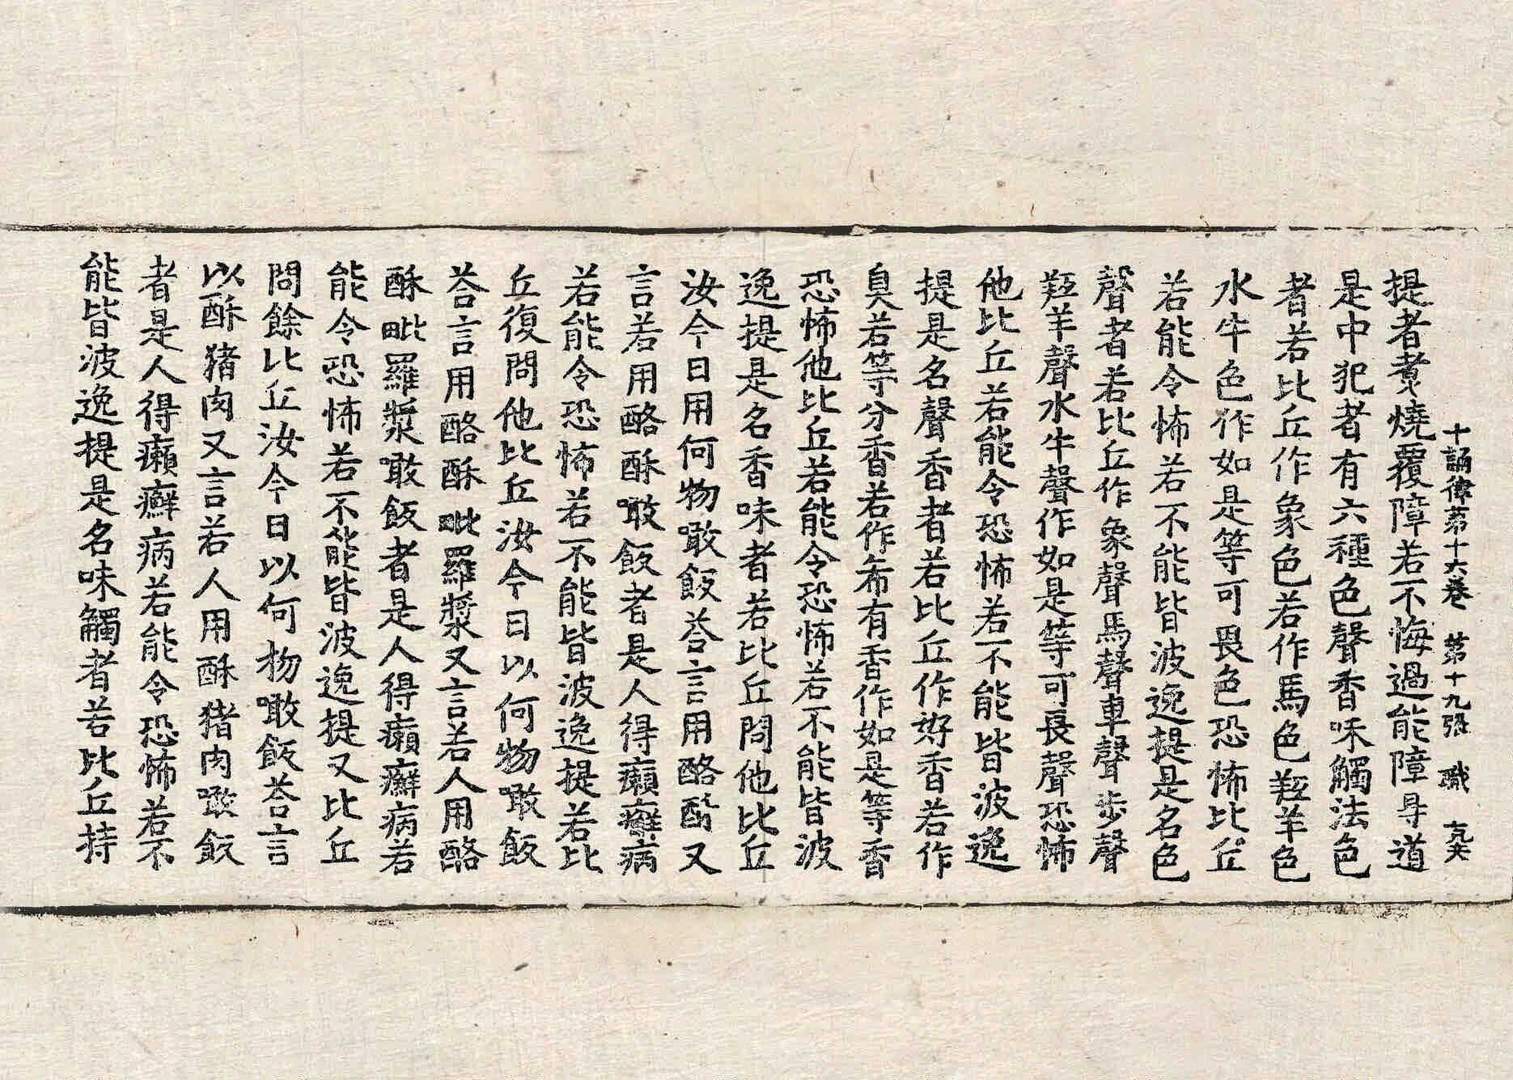 十誦律第十六卷 第十九張 職 
提者煮燒覆障若不悔過能障㝵道
是中犯者有六種色聲香味觸法色
者若比丘作象色若作馬色羖羊色
水牛色作如是等可畏色恐怖比丘
若能令怖若不能皆波逸提是名色
聲者若比丘作象聲馬聲車聲步聲
羖羊聲水牛聲作如是等可畏聲恐怖
他比丘若能令恐怖若不能皆波逸
提是名聲香者若比丘作好香若作
臭若等分香若作希有香作如是等香
恐怖他比丘若能令恐怖若不能皆波
逸提是名香味者若比丘問他比丘
汝今日用何物噉飯荅言用酪酥又
言若用酪酥噉飯者是人得癩癬病
若能令恐怖若不能皆波逸提若比
丘復問他比丘汝今日以何物噉飯
荅言用酪酥毗羅漿又言若人用酪
酥毗羅漿噉飯者是人得癩癬病若
能令恐怖若不能皆波逸提又比丘
問餘比丘汝今日以何物噉飯荅言
以酥猪肉又言若人用酥猪肉噉飯
者是人得癩癬病若能令恐怖若不
能皆波逸提是名味觸者若比丘持